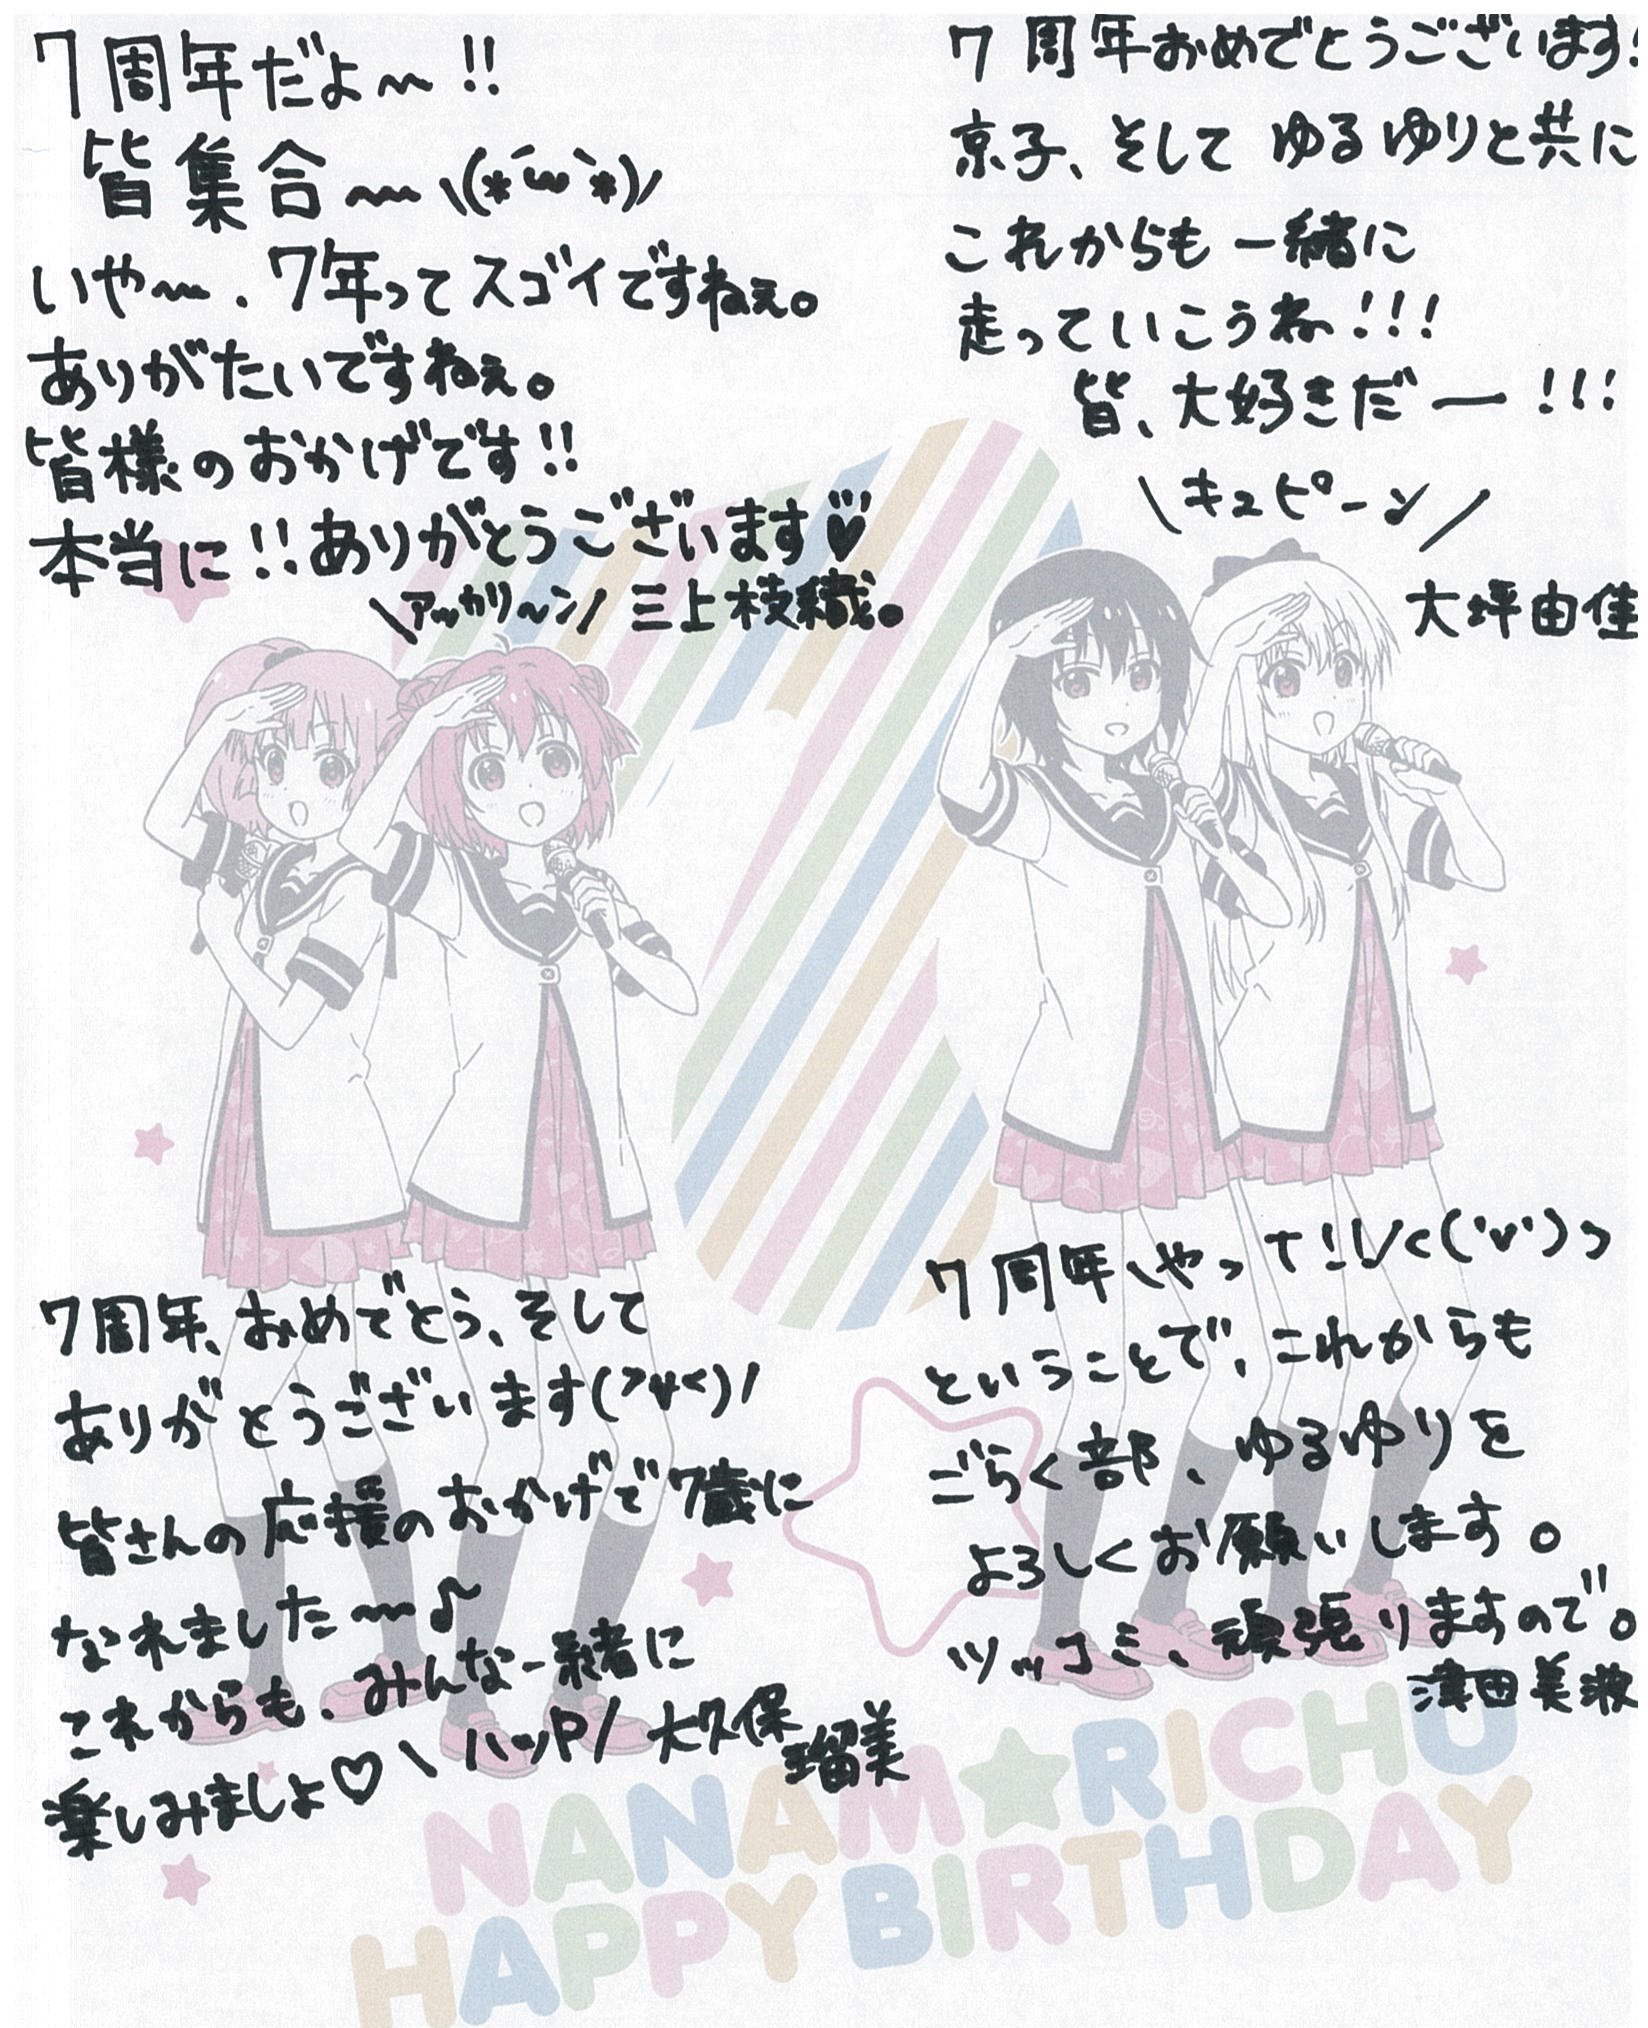 7周年だよ〜!!
皆集合〜\(*´ω`*)/
いや〜、7年ってスゴイですねぇ。
ありがたいですねぇ。
皆様のおかげです!!
本当に!!ありがとうございます♥
\アッカリ〜ン/ 三上枝織。
7周年おめでとうございます!
京子、そしてゆるゆりと共に
これからも一緒に
走っていこうね!!!
皆、大好きだー!!!
\キュピーン/
大坪由佳
7周年、おめでとう、そして
ありがとうございます(>∀<)/
皆さんの応援のおかげで7歳に
なれました〜♪
これからも、みんな一緒に
楽しみましょ♡\ハッP/ 大久保
瑠美
7周年\やっT!!/<('v')っ
ということで、これからも
ごらく部、ゆるゆりを
よろしくお願いします。
ツッコミ、頑張りますので。
津田美波
NANAM★RICHU
HAPPY BIRTHDAY